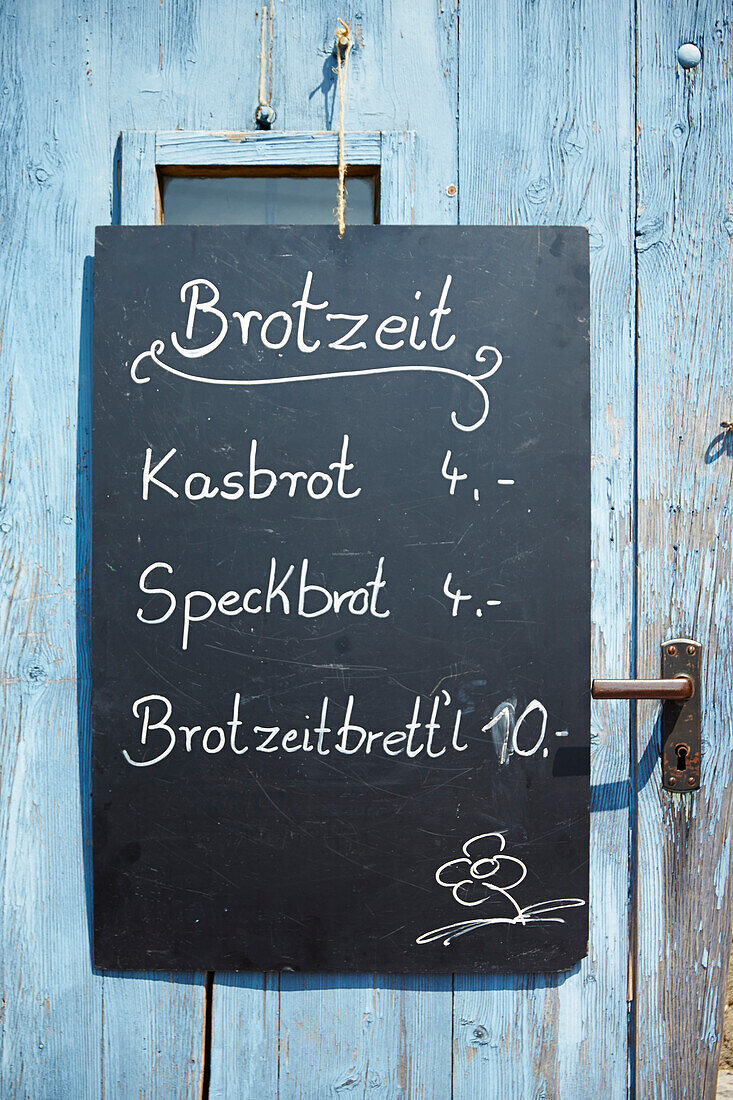 Brotzeit
Kasbrot 4,-
Speckbrot 4,-
Brotzeitbrett'l 10.-